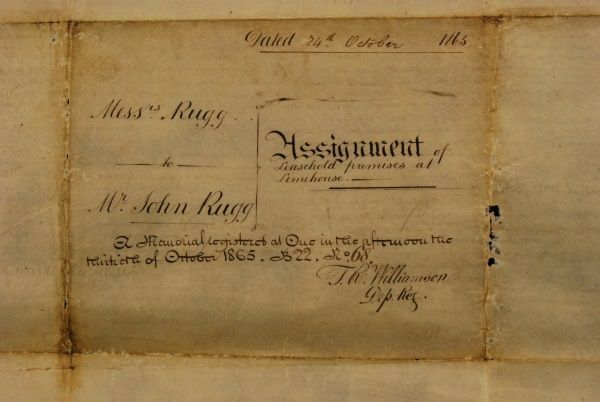 Dated 24th October 1865
Messrs. Rugg
to
Mr. John Rugg
Assignment of
Leasehold premises at
Limehouse.
A Memorial registered at One in the afternoon the
thirtieth of October 1865. B 22. No. 68.
T. R. Williamson
Dep. Reg.